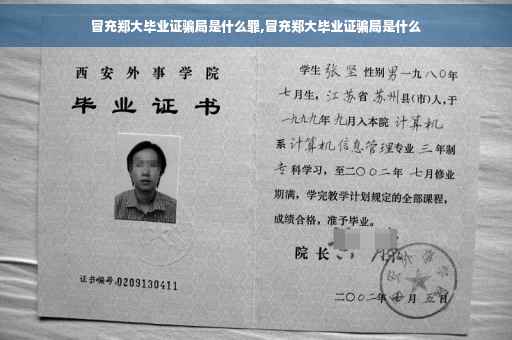 冒充郑大毕业证骗局是什么罪,冒充郑大毕业证骗局是什么
西安外事学院
毕业证书
证书编号:0209130411
学生 张坚 性别 男 一九八〇年
七月生, 江苏省 苏州县(市)人,于
一九九九年 九月入本院 计算机
系 计算机信息管理专业 三 年制
专 科学习, 至二〇〇二年 七月修业
期满, 学完教学计划规定的全部课程,
成绩合格, 准予毕业。
院长
二〇〇二年 七 月 五 日